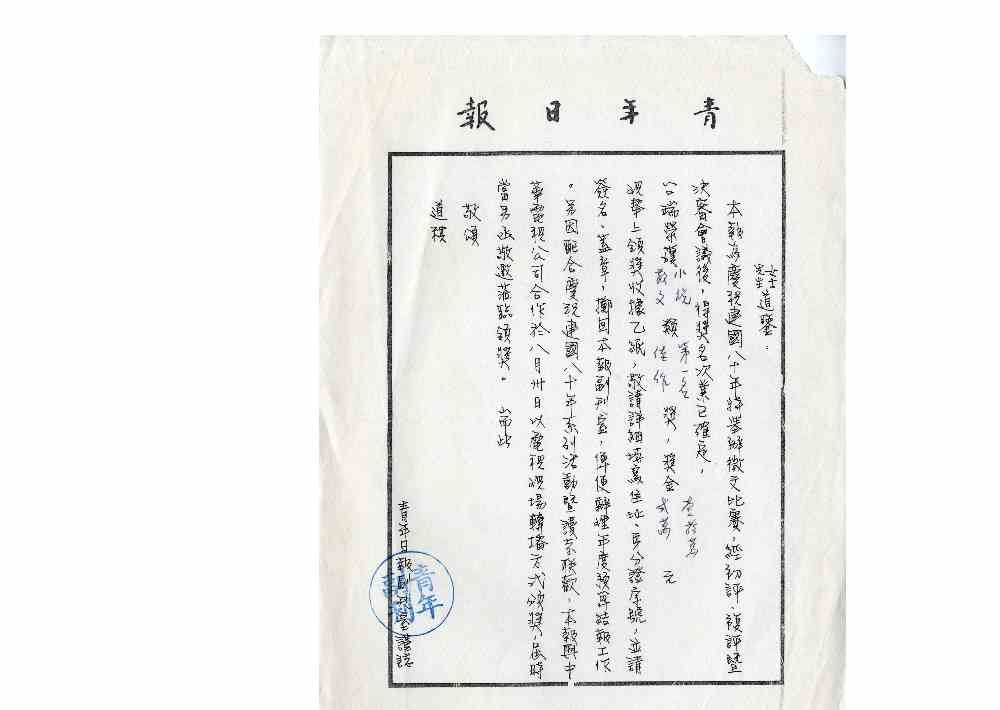 青年日報
女士
先生 道鑒：
本報為慶祝建國八十年特舉辦徵文比賽，經初評、複評暨
決審會議後，得獎名次業已確定，
台端榮獲 小說 散文 類 第一名 佳作 獎，獎金 萬 貳萬 元
現奉上領獎收據乙紙，敬請詳細填寫住址、身分證字號，並請
簽名、蓋章，擲回本報副刊室，俾便辦理年度預算結報工作
。另因配合慶祝建國八十年系列活動暨讀者聯歡，本報與中
華電視公司合作於八月卅日以電視現場轉播方式頒獎，屆時
當另函敬邀蒞臨領獎。 耑此
敬頌
道祺
青年日報副刊室謹誌
青年
副刊